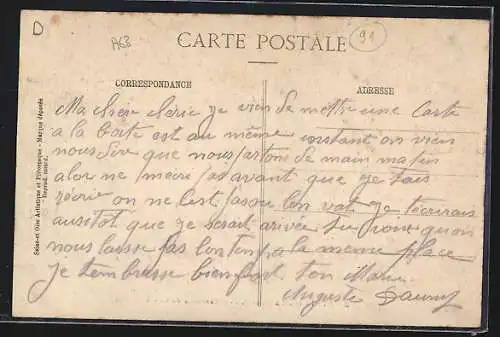 D
A63
91
CARTE POSTALE
CORRESPONDANCE
ADRESSE
Seine-et Oise Artistique et Pittoresque - Marque déposée
Reprod. interd.
Ma chère chérie je vien de mettre une Carte
a la boite est au même instant on vien
nous dire que nous partons demain matin
alor ne mecri pas avant que je tais
récrie on ne c'est pas ou l'on vat je técrirais
aussitot que je serait arrivée on
nous laisse pas lontemp a la meme place
Je tembrasse bien fort ton Mari
Auguste